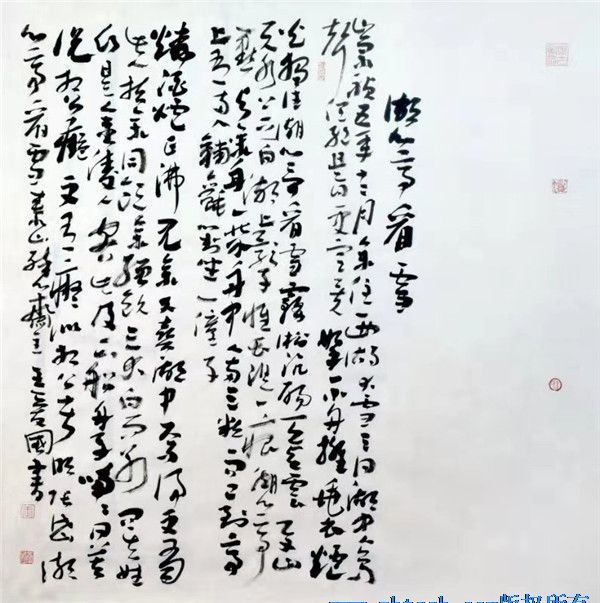 湖心亭看雪
崇祯五年十二月余住西湖大雪三日湖中人鸟
声俱绝是日更定矣拏一小舟拥毳衣炉
火独往湖心亭看雪雾凇沆砀天与云与山
与水上下一白湖上影子惟长堤一痕湖心亭
一点与余舟一芥舟中人两三粒而已到亭
上有两人铺毡对坐一童子
烧酒炉正沸见余大喜曰湖中焉得更有
此人拉余同饮余强饮三大白而别问其姓
氏是金陵人客此及下船舟子喃喃曰莫
说相公痴更有痴似相公者明张岱湖
心亭看雪 心斋主 國書
版权所有